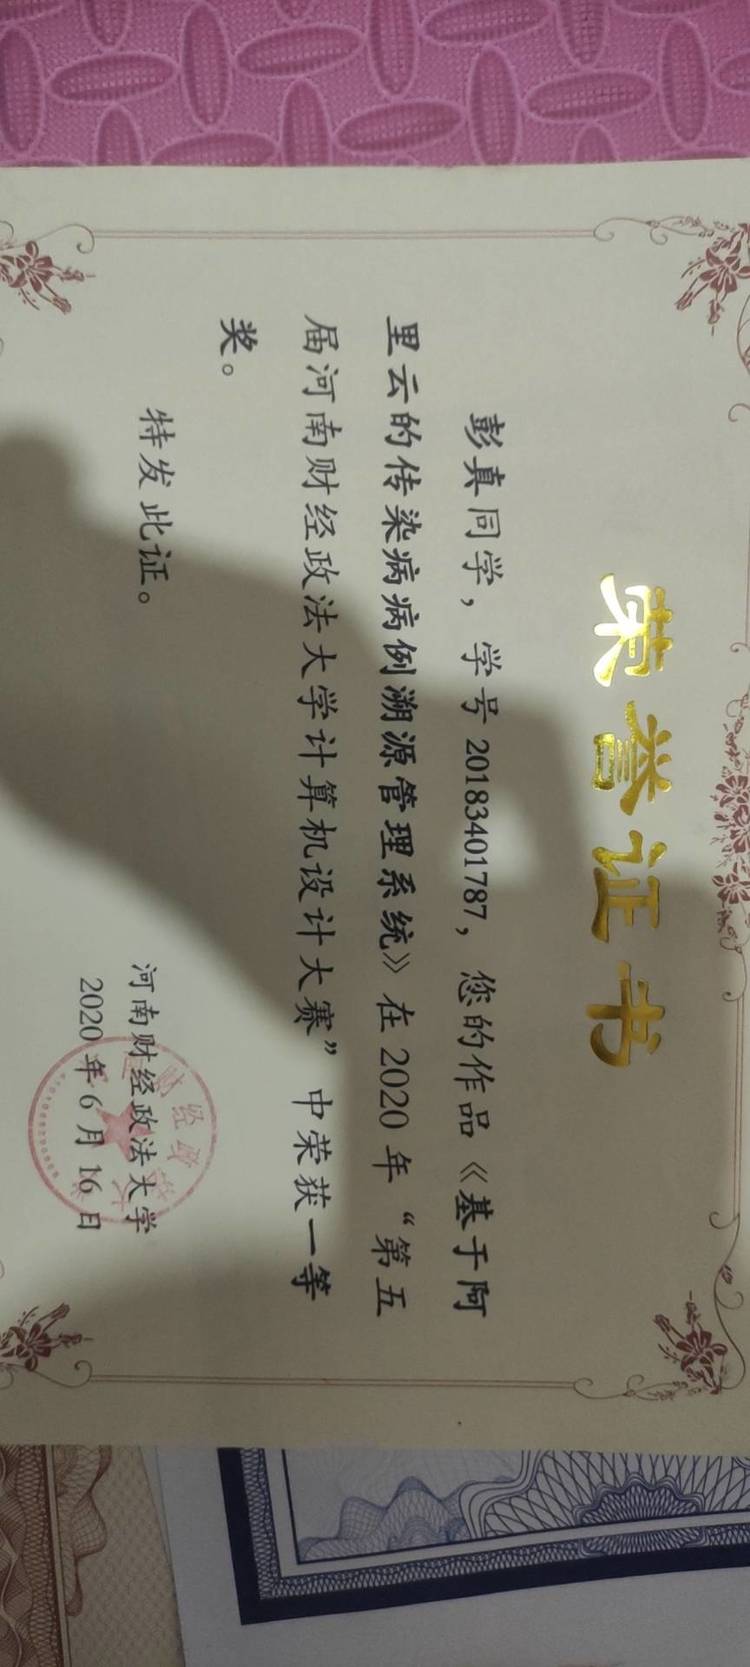 荣誉证书
彭真同学，学号 20183401787，您的作品《基于阿
里云的传染病病例溯源管理系统》在 2020 年“第五
届河南财经政法大学计算机设计大赛”中荣获一等
奖。
特发此证。
河南财经政法大学
2020 年 6 月 16 日